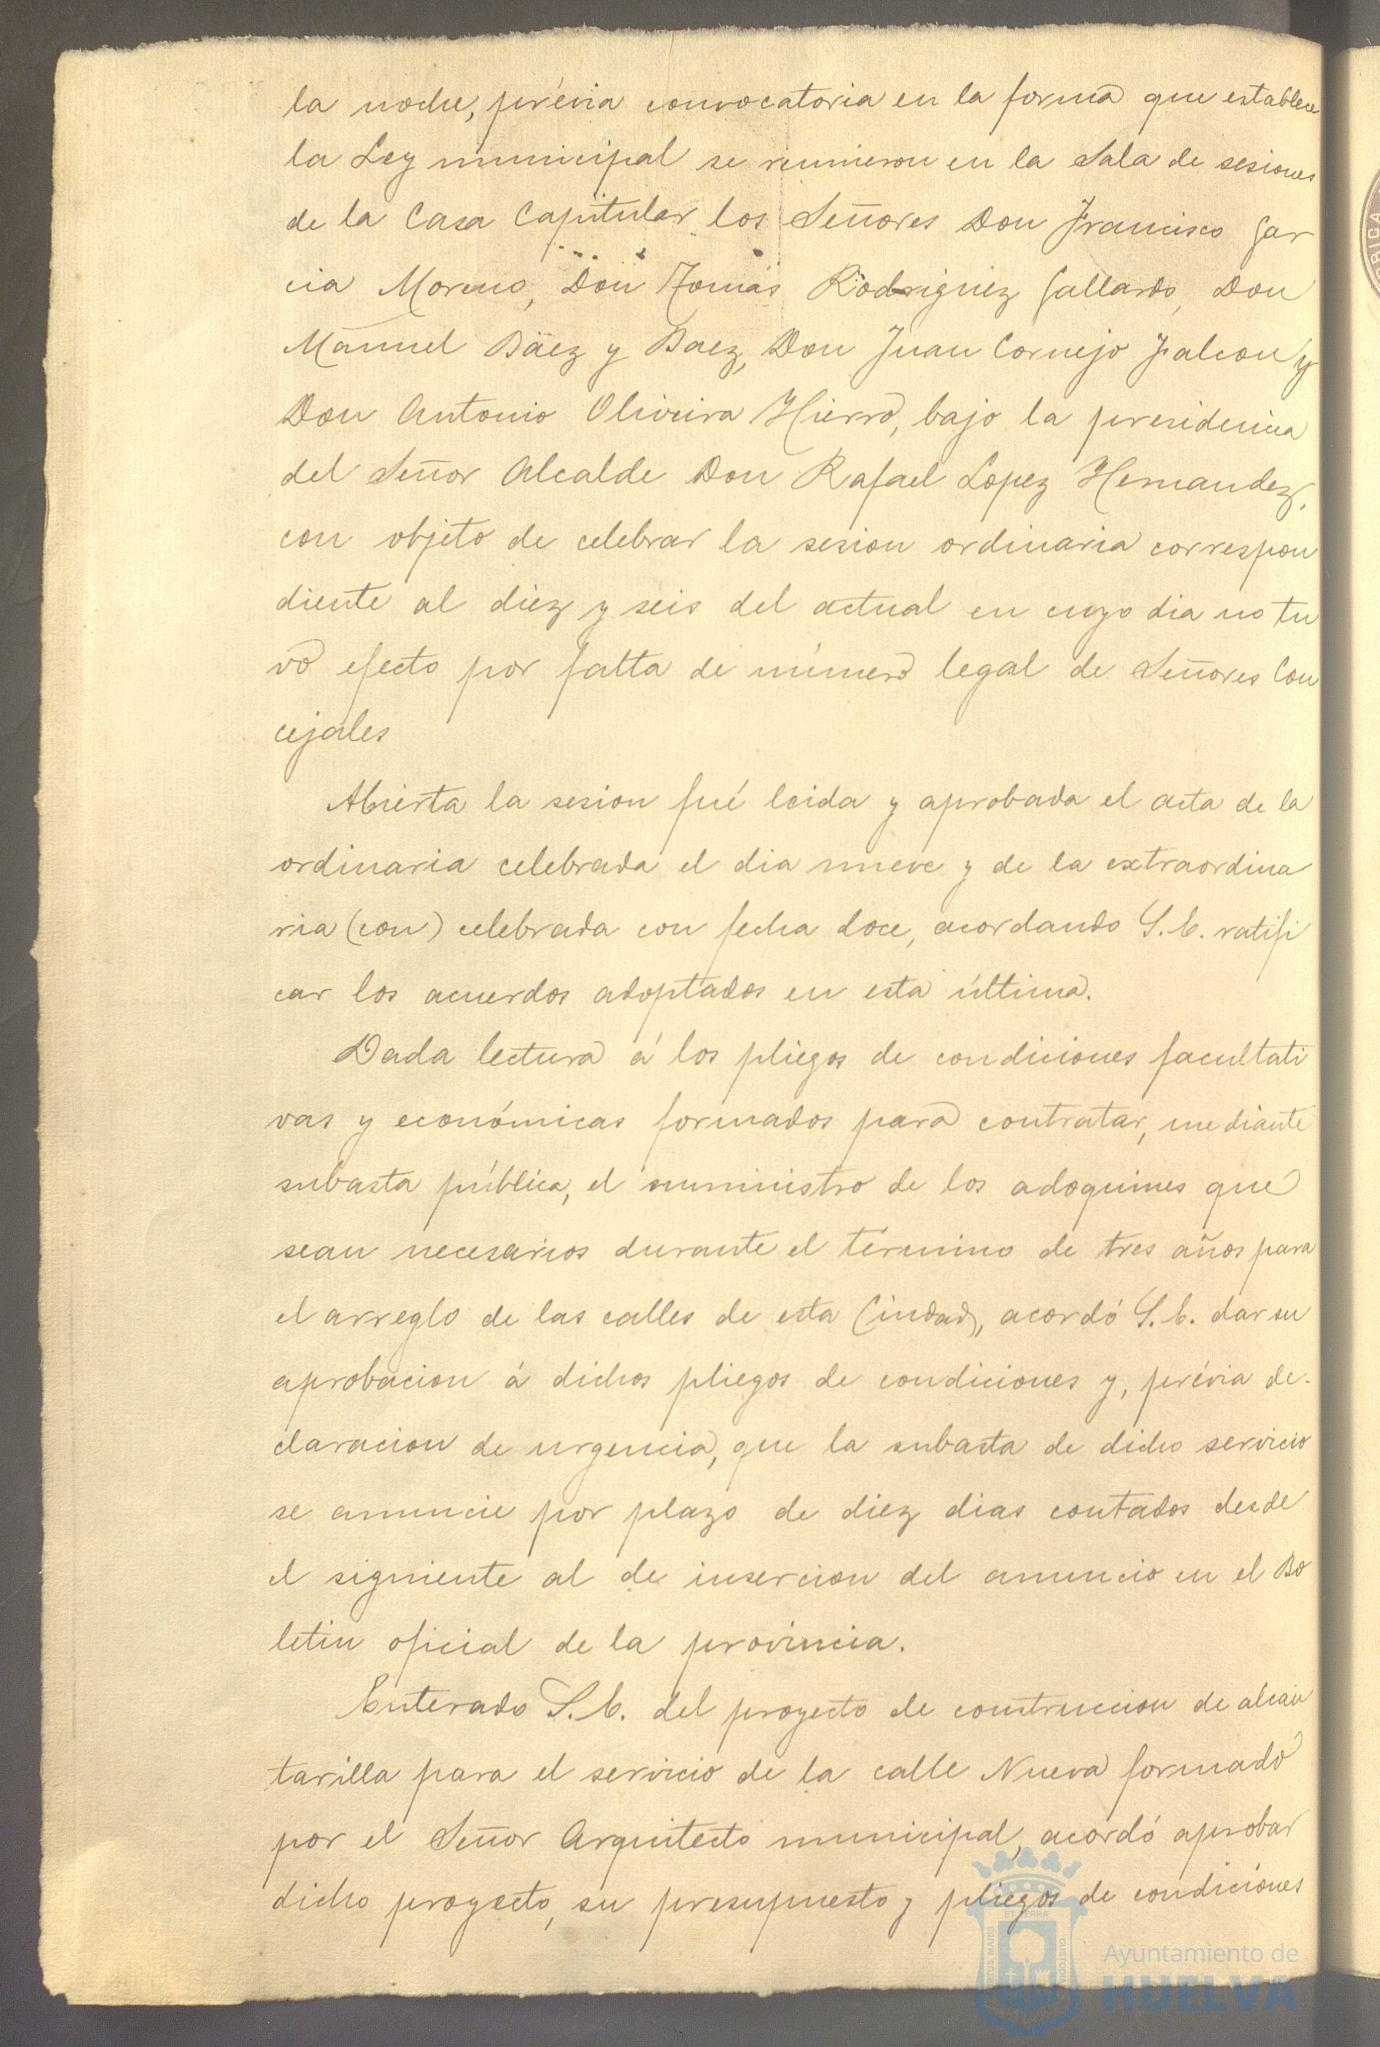 la noche, prévia convocatoria en la forma que establece
la Ley municipal se reunieron en la Sala de sesiones
de la Casa Capitular los Señores Don Francisco Gar
cia Moreno, Don Tomás Rodriguez Gallardo, Don
Manuel Báez y Baez, Don Juan Cornejo Falcon y
Don Antonio Oliveira Hierro, bajo la presidencia
del Señor Alcalde Don Rafael Lopez Hernandez,
con objeto de celebrar la sesion ordinaria correspon
diente al diez y seis del actual en cuyo dia no tu
vo efecto por falta de número legal de Señores Con
cejales
Abierta la sesion fué leida y aprobada el acta de la
ordinaria celebrada el dia nueve y de la extraordina
ria (con) celebrada con fecha doce, acordando S. C. ratifi
car los acuerdos adoptados en esta última.
Dada lectura á los pliegos de condiciones facultati
vas y económicas formados para contratar, mediante
subasta pública, el suministro de los adoquines que
sean necesarios durante el término de tres años para
el arreglo de las calles de esta Ciudad, acordó S. C. dar su
aprobacion á dichos pliegos de condiciones y, prévia de-
claracion de urgencia, que la subasta de dicho servicio
se anuncie por plazo de diez dias contados desde
el siguiente al de insercion del anuncio en el Bo
letin oficial de la provincia.
Enterado S. C. del proyecto de construccion de alcan
tarilla para el servicio de la calle Nueva formado
por el Señor Arquitecto municipal, acordó aprobar
dicho proyecto, su presupuesto y pliegos de condiciones
Ayuntamiento de
HUELVA